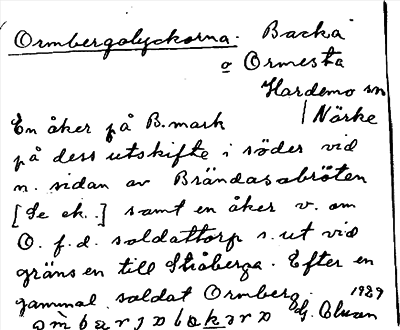 Ormbergalyckorna. Backa
o Ormesta
Hardemo sn
Närke
En åker på B.mark
på dess utskifte i söder vid
n. sidan av Brändasabröten
[Se ek.] samt en åker v. om
O. f.d. soldattorp s. ut vid
gränsen till Stråberga. Efter en
gammal soldat Ormberg. 1929
G. Olsson